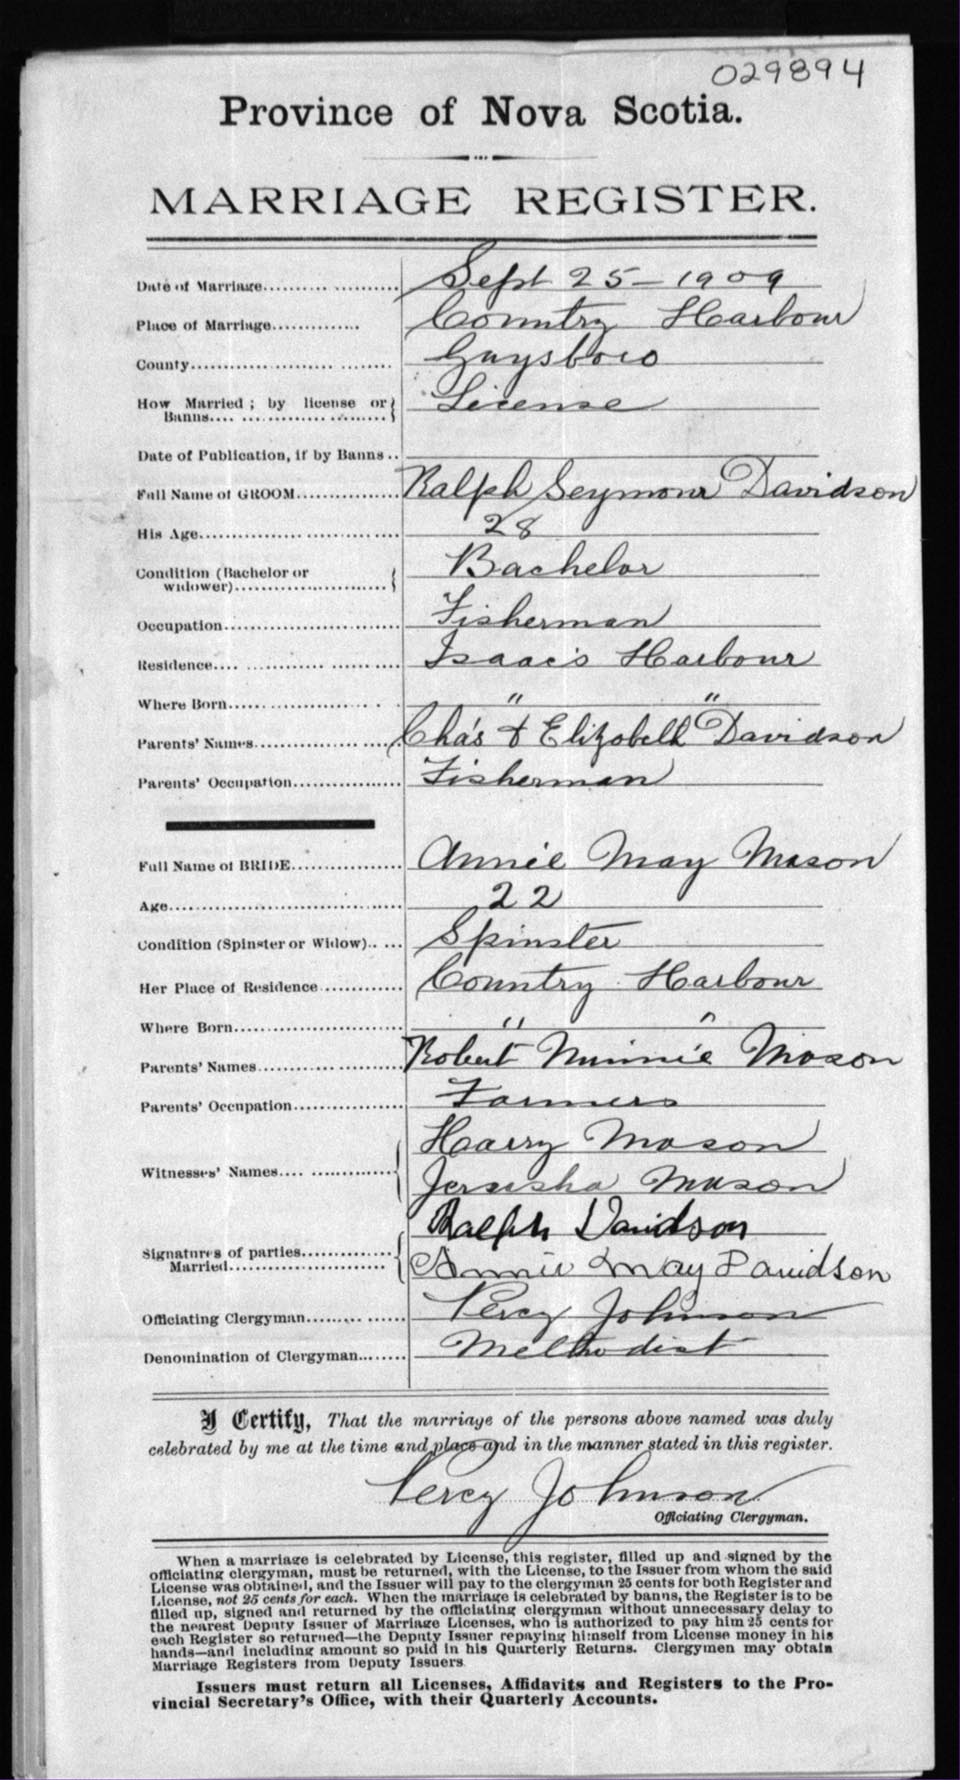 029894
Province of Nova Scotia.
MARRIAGE REGISTER.
Date of Marriage.................... Sept 25 - 1909
Place of Marriage.............. Country Harbour
County.............................. Guysboro
How Married ; by license or License
Banns..............................
Date of Publication, if by Banns ..
Full Name of GROOM............... Ralph Seymour Davidson
His Age.............................. 28
Condition (Bachelor or Bachelor
widower)..........................
Occupation.......................... Fisherman
Residence.......................... Isaac's Harbour
Where Born.......................... " "
Parents' Names.................... Cha's & Elizabeth Davidson
Parents' Occupation............... Fisherman
Full Name of BRIDE............... Annie May Mason
Age.................................. 22
Condition (Spinster or Widow)..... Spinster
Her Place of Residence............ Country Harbour
Where Born.......................... " "
Parents' Names.................... Robert Minnie Mason
Parents' Occupation............... Farmers
Harry Mason
Witnesses' Names..................
Jerusha Mason
Ralph Davidson
Signatures of parties..............
Married.......................... Annie May Davidson
Officiating Clergyman............. Percy Johnson
Denomination of Clergyman....... Methodist
I Certify, That the marriage of the persons above named was duly
celebrated by me at the time and place and in the manner stated in this register.
Percy Johnson
Officiating Clergyman.
When a marriage is celebrated by License, this register, filled up and signed by the
officiating clergyman, must be returned, with the License, to the Issuer from whom the said
License was obtained, and the Issuer will pay to the clergyman 25 cents for both Register and
License, not 25 cents for each. When the marriage is celebrated by banns, the Register is to be
filled up, signed and returned by the officiating clergyman without unnecessary delay to
the nearest Deputy Issuer of Marriage Licenses, who is authorized to pay him 25 cents for
each Register so returned—the Deputy Issuer repaying himself from License money in his
hands—and including amount so paid in his Quarterly Returns. Clergymen may obtain
Marriage Registers from Deputy Issuers
Issuers must return all Licenses, Affidavits and Registers to the Pro-
vincial Secretary's Office, with their Quarterly Accounts.